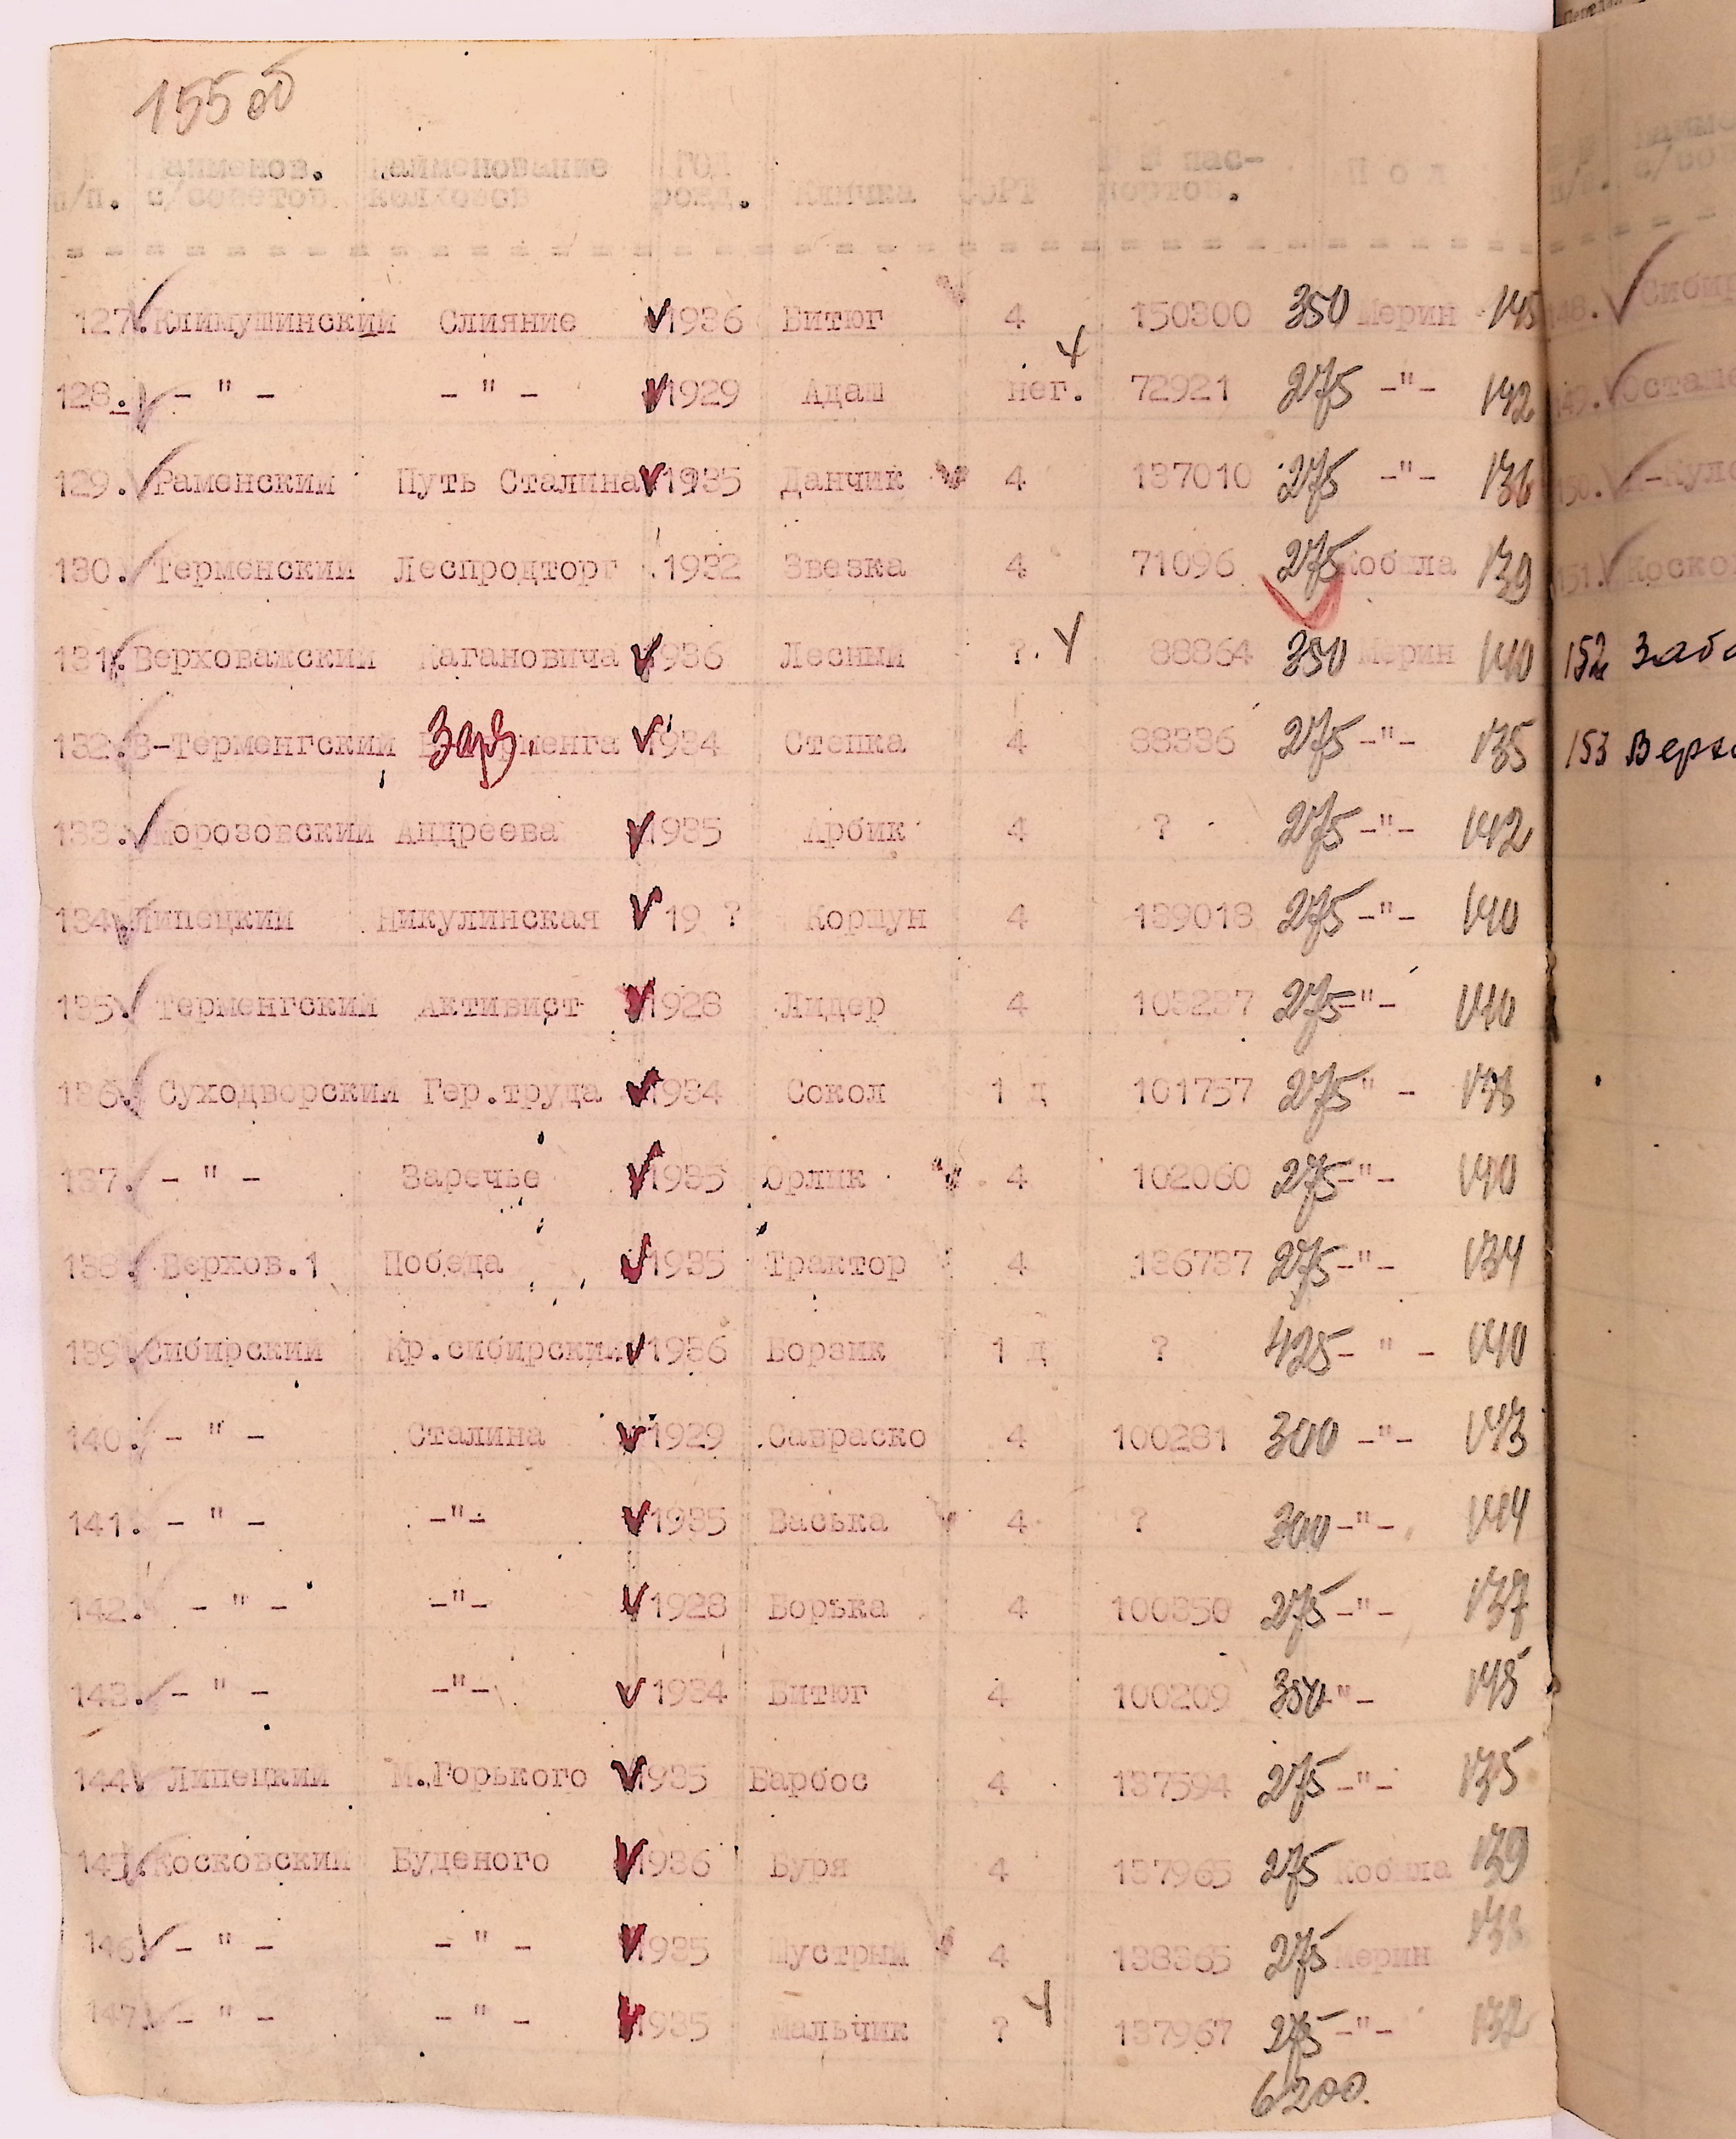 155 об
№ № Наименов. Наименование год Кличка СОРТ № № пас- Пол
п/п. с/советов колхозов рожд. портов.
127. Климушинский Слияние 1936 Битюг 4 150300 350 Мерин 145
128. - " - - " - 1929 Адаш нег. 4 72921 275 -"- 142
129. Раменский Путь Сталина 1935 Данчик 4 137010 275 -"- 136
130. Терменский Леспродторг 1932 Звезка 4 71096 275 Кобыла 139
131. Верховажский Кагановича 1936 ? Лесный ?. 4 88864 350 Мерин 140
132. В-Терменгский Заря 1934 Степка 4 88336 275 -"- 135
133. Морозовский Андреева 1935 Арбик 4 ? 275 -"- 142
134. Липецкий Никулинская 19 ? Коршун 4 139018 275 -"- 140
135. Терменгский Активист 1928 Лидер 4 103237 275 -"- 140
136. Суходворский Гер.труда 1934 Сокол 1 д 101757 275 " - 138
137. - " - Заречье 1935 Орлик 4 102060 275 -"- 140
138. Верхов.1 Победа 1935 Трактор 4 136737 275 -"- 134
139. Сибирский Кр.сибирский 1936 Борзик 1 д ? 425 - " - 140
140. - " - Сталина 1929 Савраско 4 100281 300 -"- 143
141. - " - -"- 1935 Васька 4 ? 300 -"- 144
142. - " - -"- 1928 Борька 4 100350 275 -"- 137
143. - " - -"- 1934 Битюг 4 100209 350 -"- 145
144. Липецкий М.Горького 1935 Барбос 4 137594 275 -"- 135
145. Косковский Буденого 1936 Буря 4 137965 275 Кобыла 139
146. - " - - " - 1935 Шустрый 4 138365 275 Мерин 138
147. - " - - " - 1935 Мальчик ? 4 137967 275 -"- 132
6200.
148. Сибир
149. Осташе
150. -Куло
151. Коско
152 Заб
153 Верх